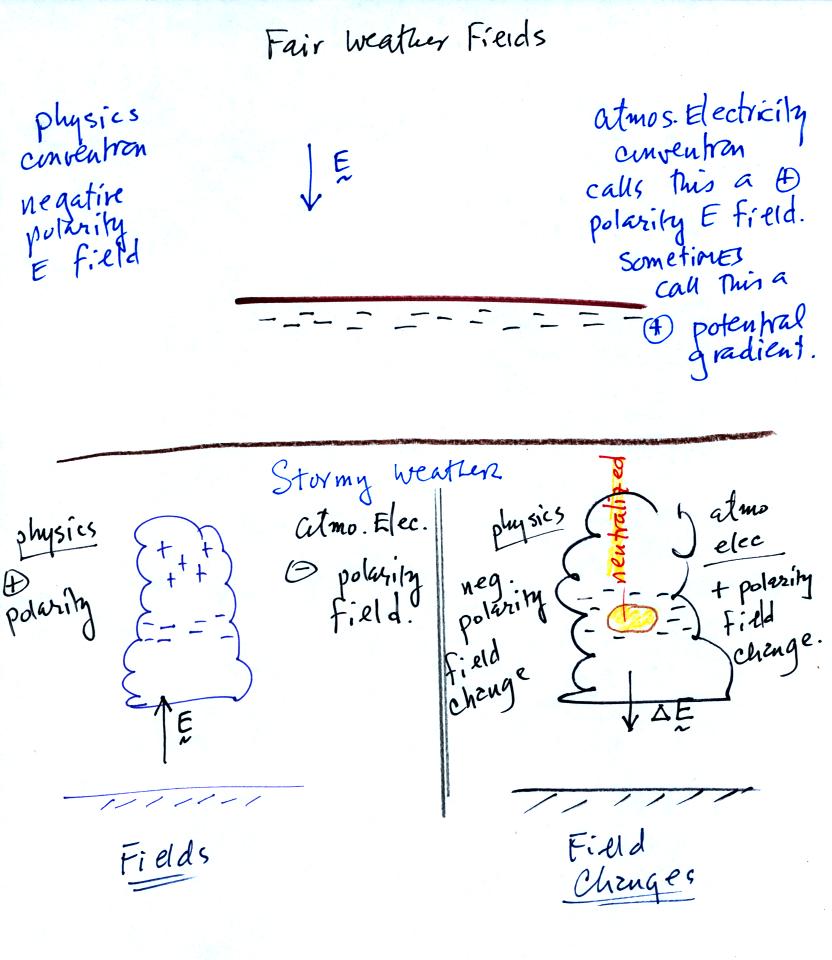 Fair Weather Fields
physics
convention
negative
polarity
E field
E
atmos. Electricity
convention
calls this a ⊕
polarity E field.
sometimes
call this a
⊕ potential
gradient.
Stormy Weather
physics
⊕
polarity
+ +
+ + +
E
atmo. Elec.
⊖ polarity
field.
Fields
physics
neg.
polarity
field
change
neutralized
ΔE
atmo
elec
+ polarity
field
change.
Field
Changes